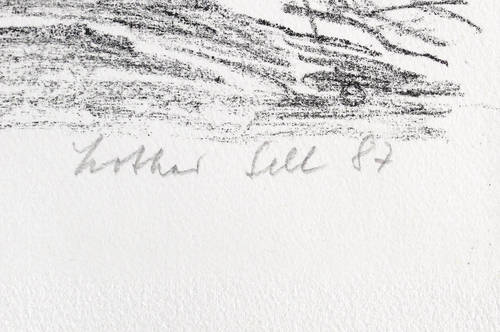 Lothar Sell 87